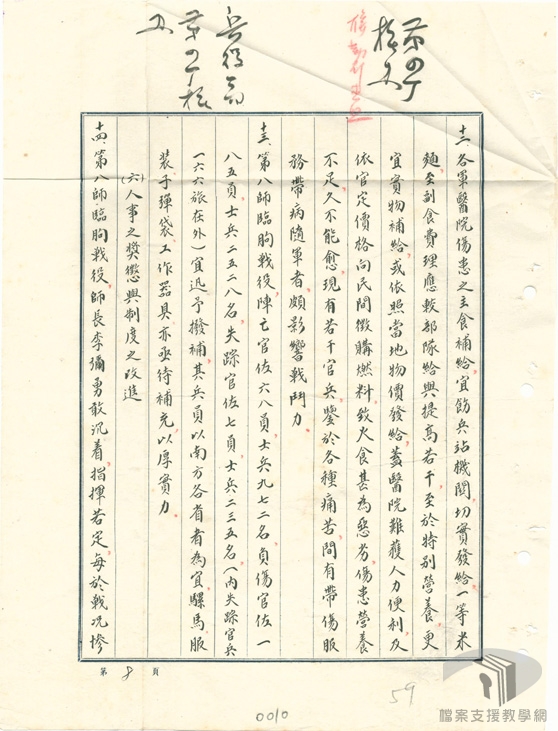 十二、各軍醫院傷患之主食補給宜飭兵站機關切實發給一等米
麵至副食費理應較部隊給與提高若干至於特別營養更
宜實物補給或依照當地物價發給蓋醫院難獲人力便利及
依官定價格向民間徵購燃料致火食甚為惡劣傷患營養
不足久不能愈現有若干官兵鑒於各種痛苦間有帶傷服
務帶病隨軍者頗影響戰鬥力
十三、第八師臨朐戰役陣亡官佐六八員士兵九七二名負傷官佐一
八五員士兵二五二八名失踪官佐七員士兵二三五名(內失踪官兵
一六六旅在外)宜迅予撥補其兵員以南方各省者為宜騾馬服
裝子彈袋工作器具亦亟待補充以厚實力
(六)人事之獎懲與制度之改進
十四、第八師臨朐戰役師長李彌勇敢沉着指揮若定每於戰況慘
第 8 頁
59
0010
檔案支援教學網